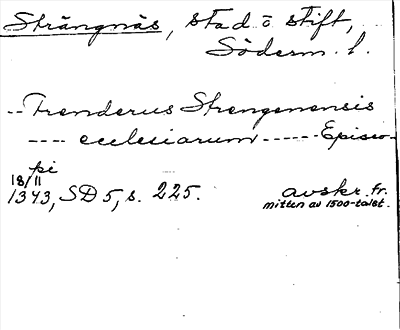 Strängnäs, stad o stift,
Söderm. l.
-- Frenderus Strengenensis
---- ecclesiarum ------ Episco-
pi
18/11
1343, SD 5, s. 225. avskr. fr.
mitten av 1500-talet.